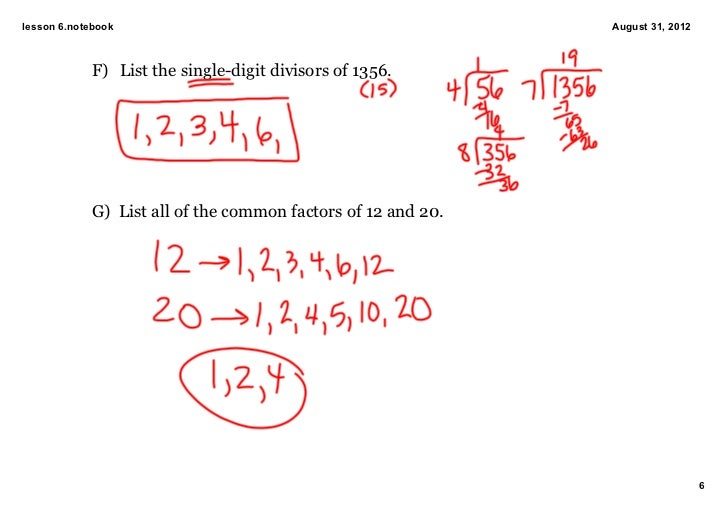 lesson 6.notebook
August 31, 2012
F) List the single-digit divisors of 1356.
(15)
1, 2, 3, 4, 6,
1
4 56
-4
16
4
8 356
-32
36
19
7 1356
-7
65
-63
26
G) List all of the common factors of 12 and 20.
12 → 1, 2, 3, 4, 6, 12
20 → 1, 2, 4, 5, 10, 20
1, 2, 4
6